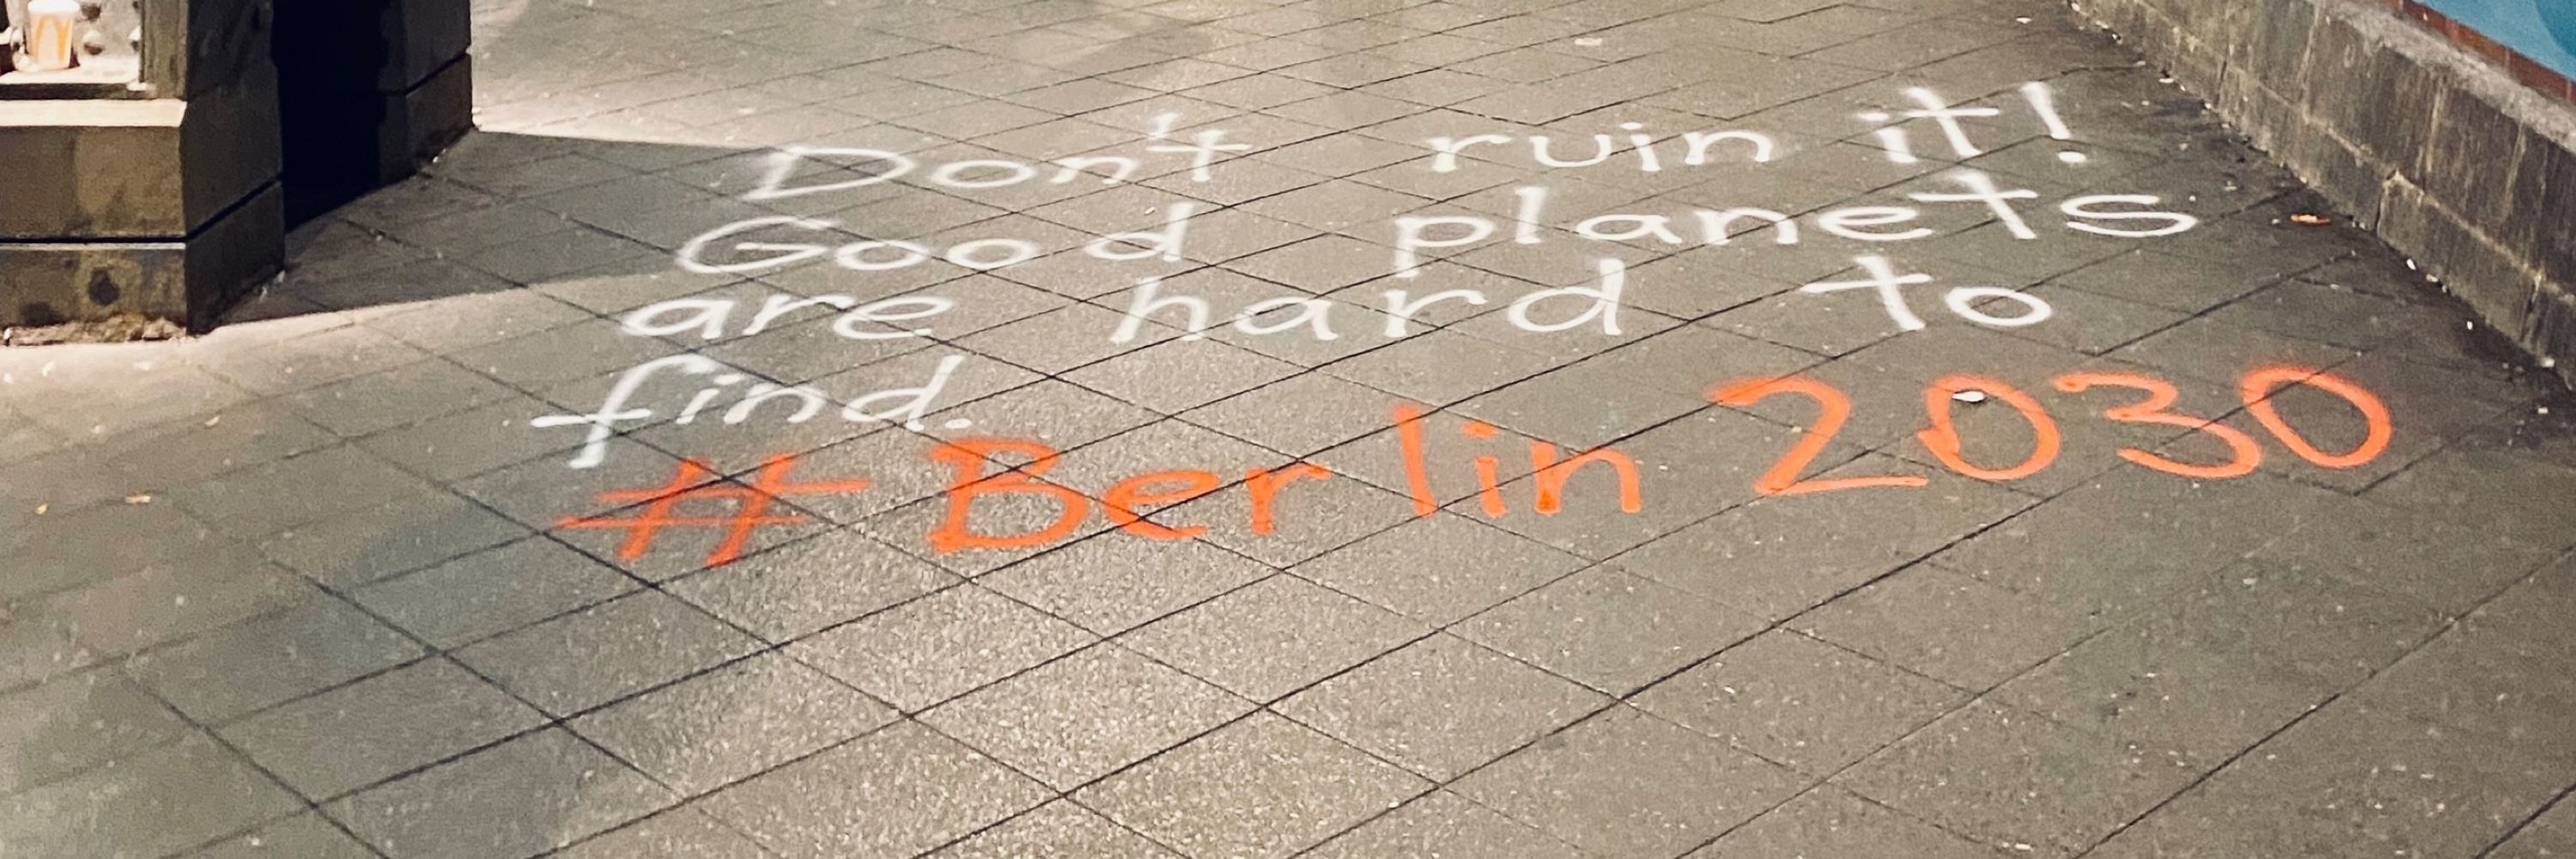 Don't ruin it!
Good planets
are hard to
find.
# Berlin 2030